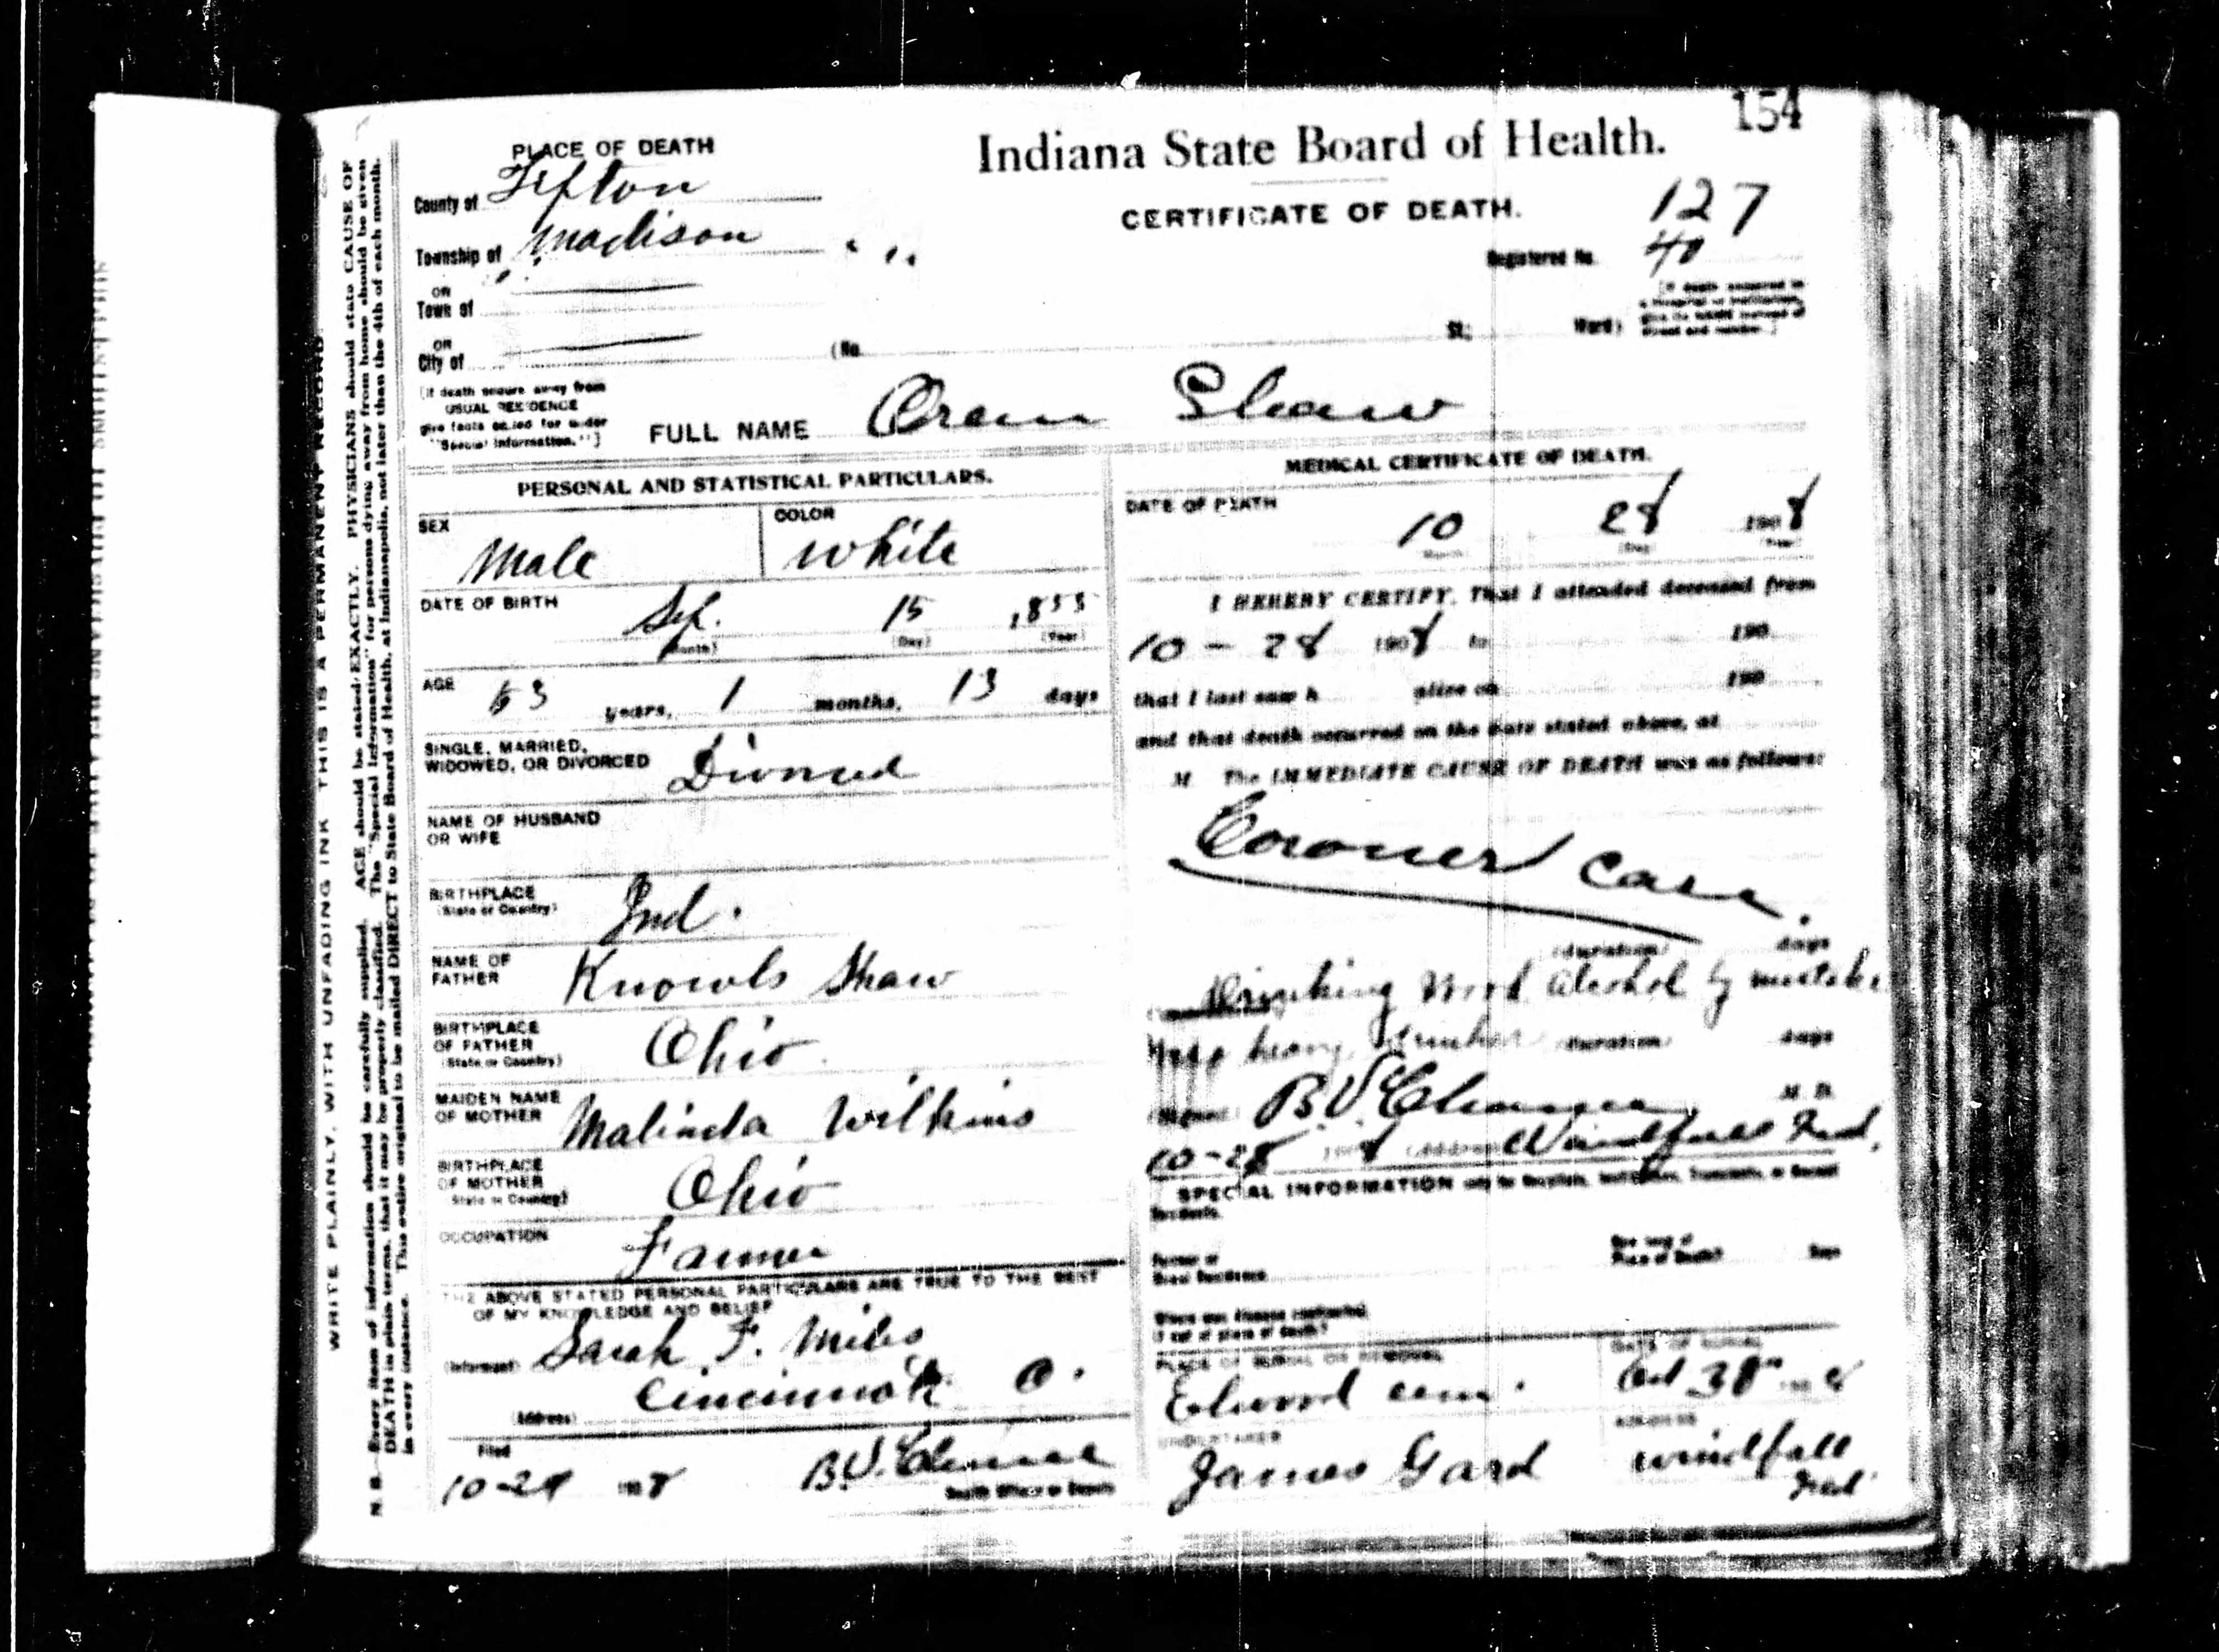 154
Indiana State Board of Health.
CERTIFICATE OF DEATH.
127
Registered No. 40
PLACE OF DEATH
County of Tipton
Township of Madison
OR
Town of
OR
City of
(No. St; Ward)
[If death occurred in
a Hospital or Institution,
give its NAME instead of
street and number.]
[If death occurs away from
USUAL RESIDENCE
give facts called for under
"Special Information."]
FULL NAME Oren Shaw
PERSONAL AND STATISTICAL PARTICULARS.
SEX
Male
COLOR
White
DATE OF BIRTH
Sep. 15 1855
(Month) (Day) (Year)
AGE
53 years, 1 months, 13 days
SINGLE, MARRIED,
WIDOWED, OR DIVORCED Divorced
NAME OF HUSBAND
OR WIFE
BIRTHPLACE
(State or Country) Ind.
NAME OF
FATHER Knowls Shaw
BIRTHPLACE
OF FATHER
(State or Country) Ohio
MAIDEN NAME
OF MOTHER Malinda Wilkins
BIRTHPLACE
OF MOTHER
State or Country) Ohio
OCCUPATION
Farmer
THE ABOVE STATED PERSONAL PARTICULARS ARE TRUE TO THE BEST
OF MY KNOWLEDGE AND BELIEF
(Informant) Sarah F. Miles
(Address) Cincinnati O.
Filed
10-29 1908 B.V. Chance
Health Officer or Deputy
MEDICAL CERTIFICATE OF DEATH.
DATE OF DEATH
10 28 1908
(Month) (Day) (Year)
I HEREBY CERTIFY, That I attended deceased from
10 - 28 1908 to 190
that I last saw h alive on 190
and that death occurred on the date stated above, at
M The IMMEDIATE CAUSE OF DEATH was as follows:
Coroner Case.
(duration) days
Drinking Wood Alcohol by mistake
heavy drinker (duration) days
(Signed) B V Chance M. D.
10-28 1908 (Address) Windfall Ind.
SPECIAL INFORMATION only for Hospitals, Institutions, Transients, or Recent
Residents.
Former or
Usual Residence
How long at
Place of Death? Days
Where was disease contracted,
if not at place of death?
PLACE OF BURIAL OR REMOVAL
Elwood cem.
DATE OF BURIAL
Oct 30 1908
UNDERTAKER
James Gard
ADDRESS
Windfall
Ind.
WRITE PLAINLY, WITH UNFADING INK THIS IS A PERMANENT RECORD
N. B.—Every item of information should be carefully supplied. AGE should be stated EXACTLY. PHYSICIANS should state CAUSE OF
DEATH in plain terms, that it may be properly classified. The "Special Information" for persons dying away from home should be given
in every instance. This entire original to be mailed DIRECT to State Board of Health, at Indianapolis, not later than the 4th of each month.